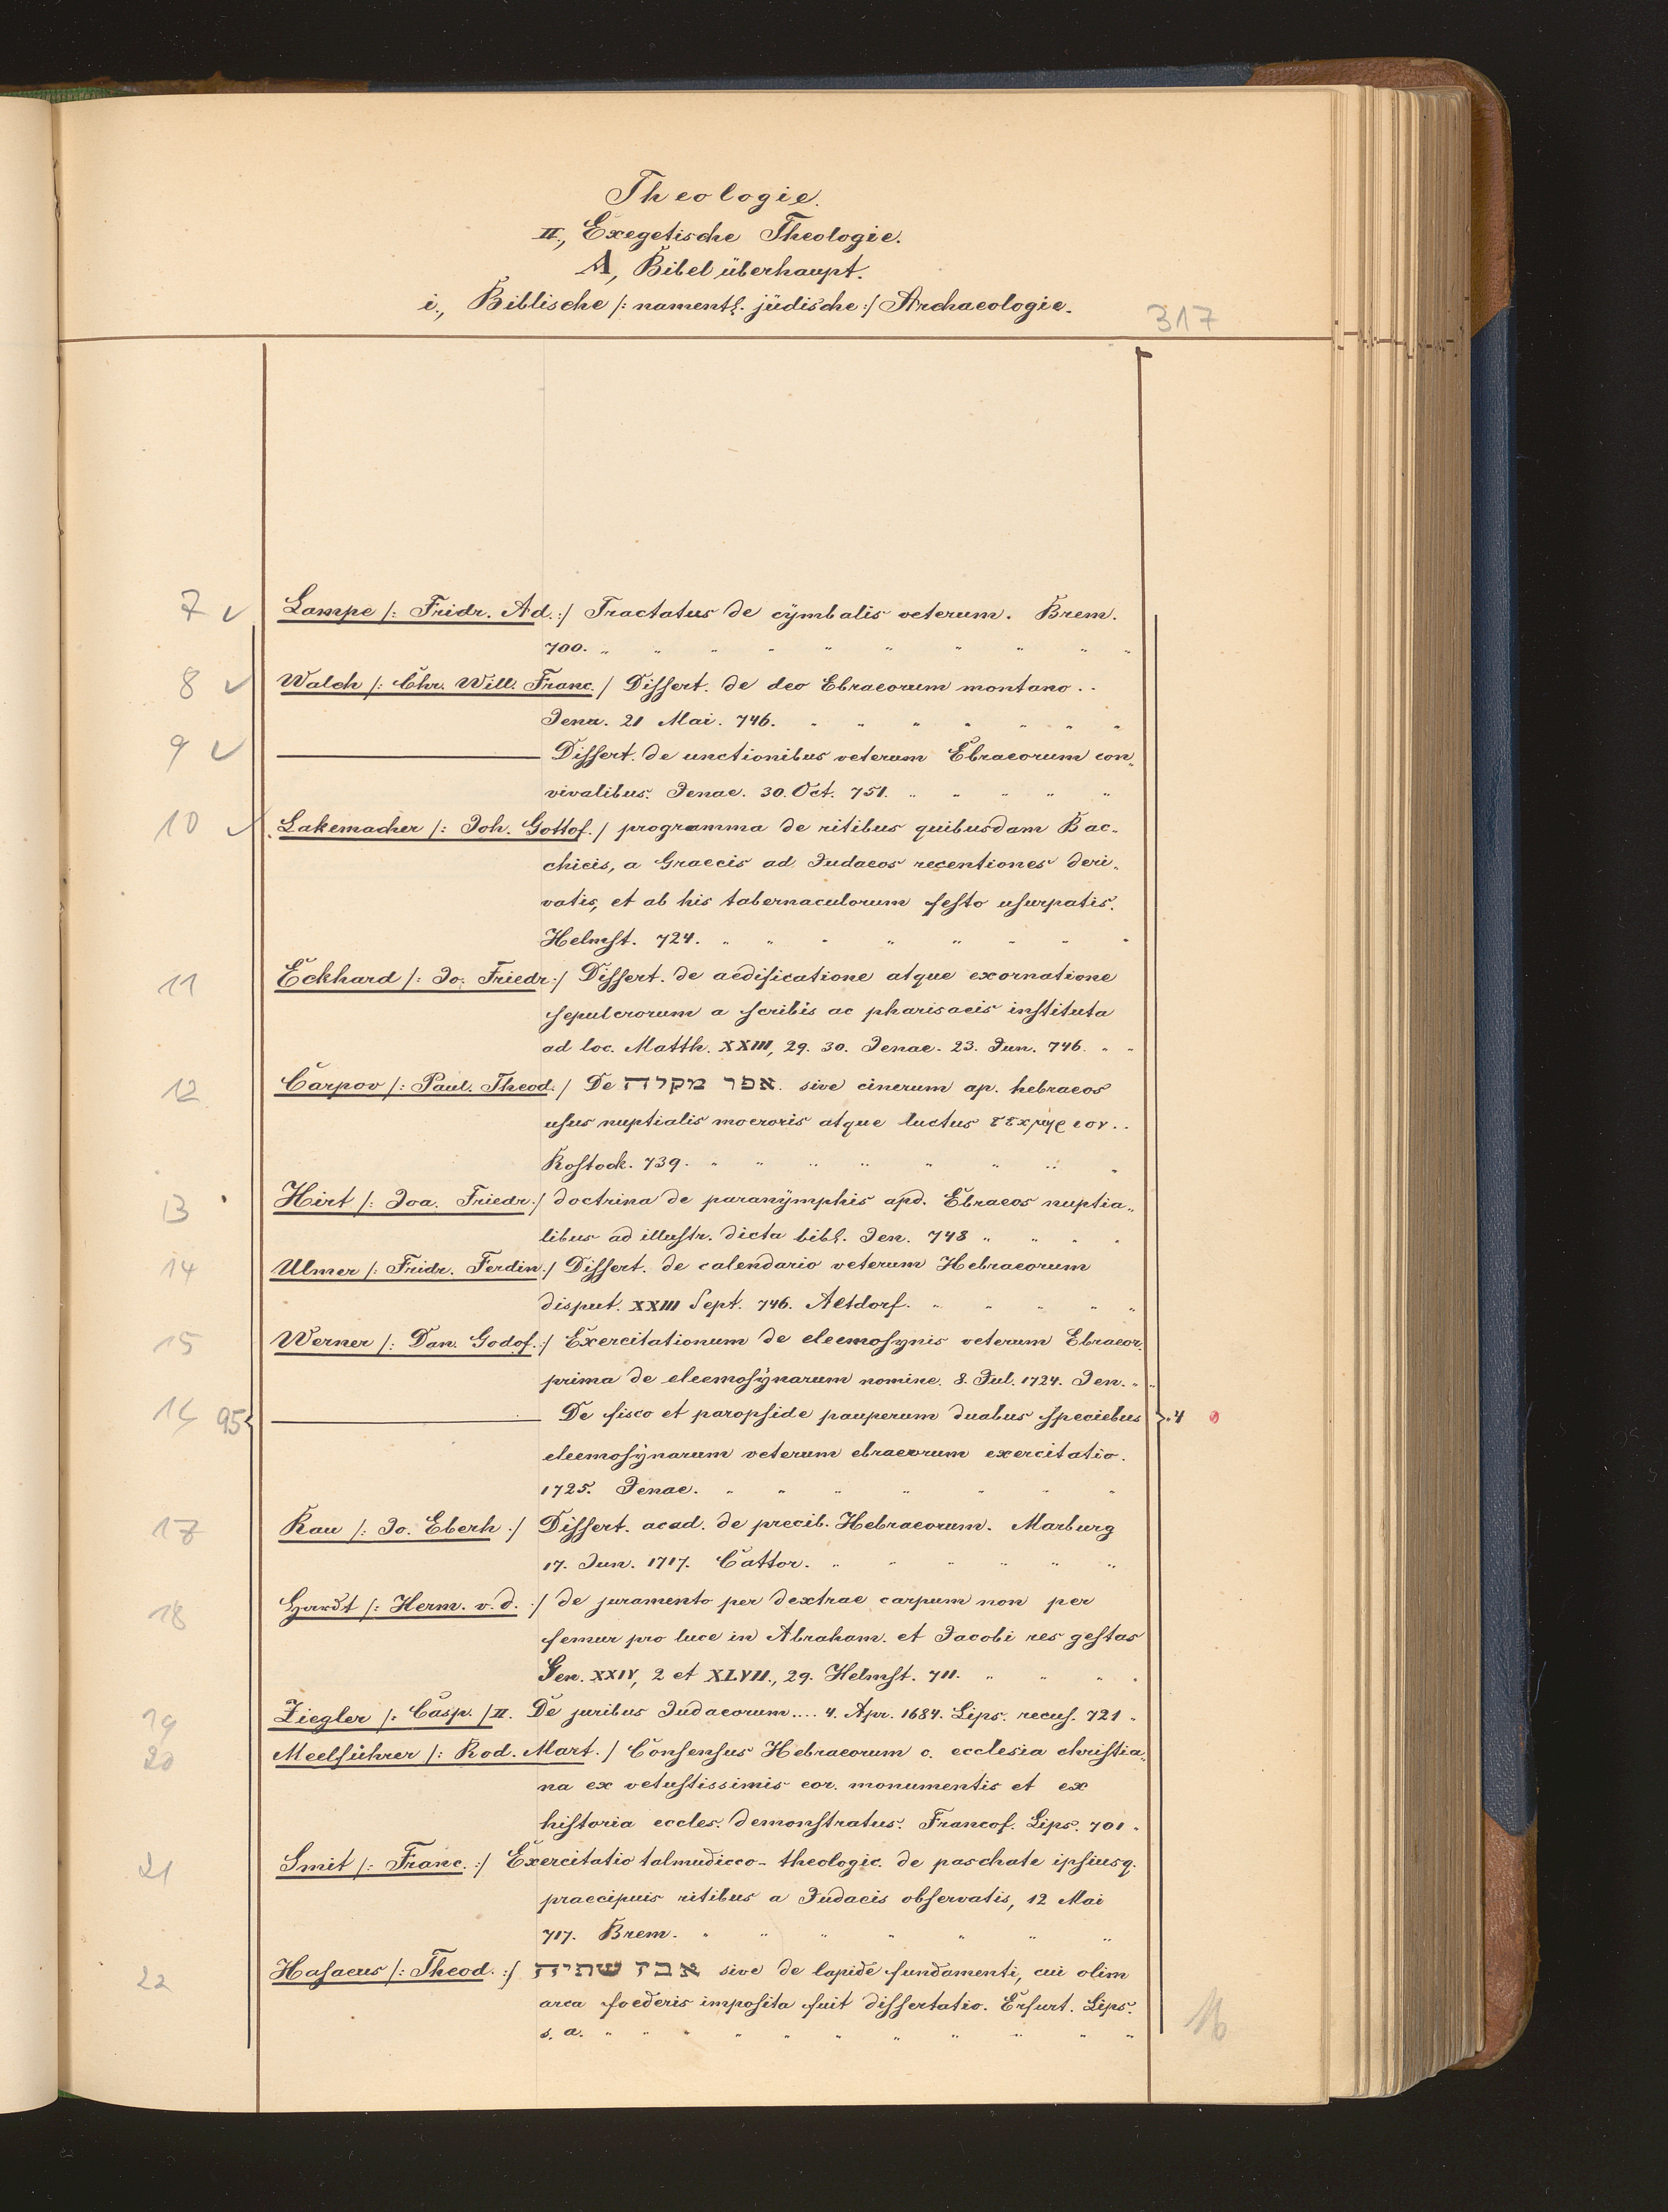 Theologie.
II., Exegetische Theologie.
A, Bibel überhaupt.
i., Biblische /: namentl. jüdische :/ Archaeologie.
317
7 Lampe /: Fridr. Ad. :/ Tractatus de cÿmbalis veterum. Brem.
700. " " " " " " " " " "
8 Walch /: Chr. Will. Franc. / Dissert. de deo Ebraeorum montano..
Jena. 21 Mai. 746. " " " " " " "
9 ——— Dissert. de unctionibus veterum Ebraeorum con„
vivalibus. Jenae. 30. Oct. 751. " " " " "
10 Lakemacher /: Joh. Gottof. / programma de ritibus quibusdam Bac-
chicis, a Graecis ad Judaeos recentiones deri„
vatis, et ab his tabernaculorum festo usurpatis.
Helmst. 724. " " " " " " " "
11 Eckhard /: Jo. Friedr :/ Dissert. de aedificatione atque exornatione
sepulcrorum a scribis ac pharisaeis instituta
ad loc. Matth. XXIII, 29. 30. Jenae. 23. Jun. 746. " "
12 Carpov /: Paul. Theod. / De אפר מקלה. sive cinerum ap. hebraeos
usus nuptialis moeroris atque luctus
Rostock. 739. " " " " " " " "
13 Hirt /: Joa. Friedr. :/ doctrina de paranÿmphis apd. Ebraeos nuptia„
libus ad illustr. dicta bibl. Jen. 748 " " " "
14 Ulmer /: Fridr. Ferdin. :/ Dissert. de calendario veterum Hebraeorum
disput. XXIII Sept. 746. Altdorf. " " " " "
15 Werner /: Dan. Godof. :/ Exercitationum de eleemosynis veterum Ebraeor.
prima de eleemosÿnarum nomine. 8. Jul. 1724. Jen. " "
16 95 ——— De fisco et paropside pauperum duabus speciebus .4
eleemosÿnarum veterum ebraeorum exercitatio.
1725. Jenae. " " " " " " "
17 Rau /: Jo. Eberh :/ Dissert. acad. de precib. Hebraeorum. Marburg
17. Jun. 1717. Cattor. " " " " " "
18 Hardt /: Herm. v. d. :/ de juramento per dextrae carpum non per
femur pro luce in Abraham. et Jacobi res gestas
Gen. XXIV, 2 et XLVII., 29. Helmst. 711. " " " "
19 Ziegler /: Casp. / II. De juribus Judaeorum.... 4. Apr. 1684. Lips. recus. 721 "
20 Meelführer /: Rod. Mart. / Consensus Hebraeorum c. ecclesia christia„
na ex vetustissimis eor. monumentis et ex
historia eccles. demonstratus. Francof. Lips. 701.
21 Smit /: Franc. :/ Exercitatio talmudicco-theologic. de paschate ipsiusq.
praecipuis ritibus a Judaeis observatis, 12 Mai
717. Brem. " " " " " " "
22 Hasaeus /: Theod. :/ אבן שתיה sive de lapide fundamenti, cui olim
arca foederis imposita fuit dissertatio. Erfurt. Lips.
s. a. " " " " " " " " " " "
16